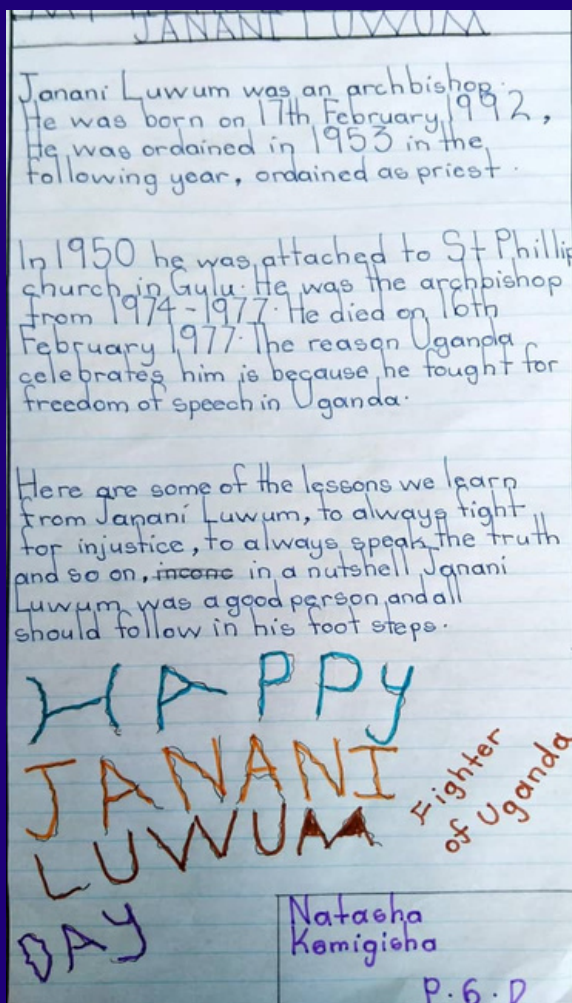 JANANI LUWUM
Janani Luwum was an archbishop.
He was born on 17th February 1992,
He was ordained in 1953 in the
following year, ordained as priest.
In 1950 he was attached to St Phillip
church in Gulu. He was the archbishop
from 1974-1977. He died on 16th
February 1977. The reason Uganda
celebrates him is because he fought for
freedom of speech in Uganda.
Here are some of the lessons we learn
from Janani Luwum, to always fight
for injustice, to always speak the truth
and so on, incone in a nutshell Janani
Luwum was a good person and all
should follow in his foot steps.
HAPPY
JANANI
LUWUM
DAY
Fighter
of Uganda
Natasha
Komigisha
P.6.D